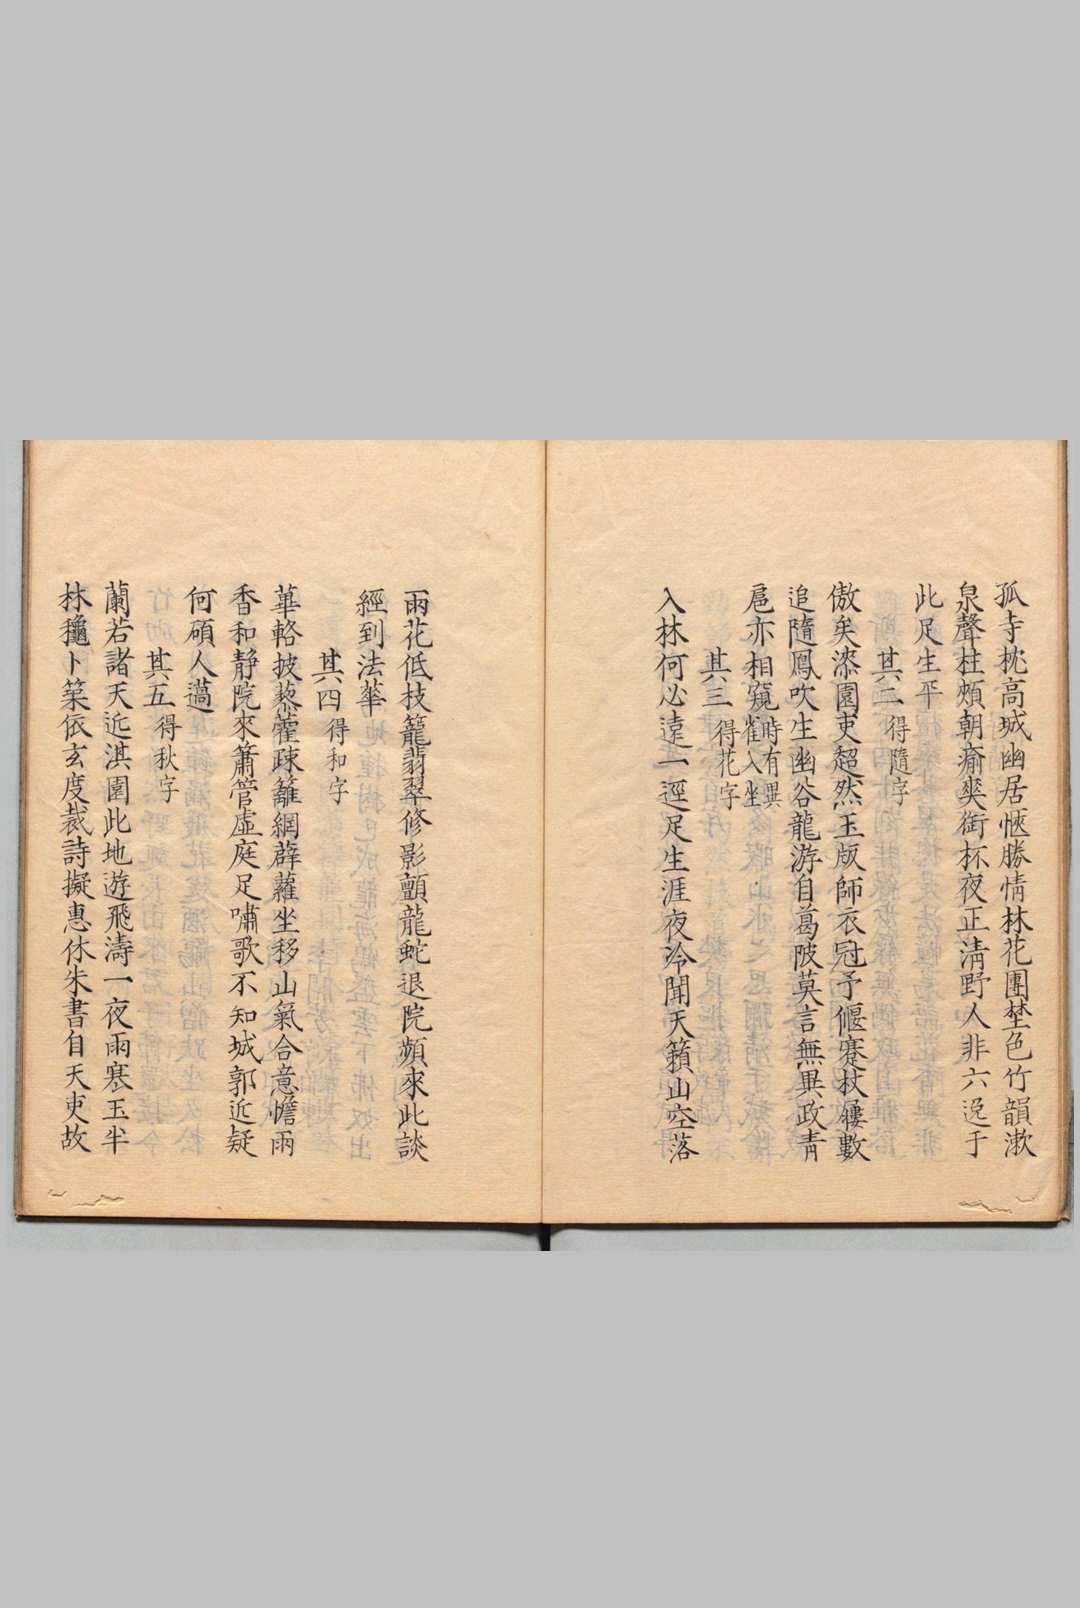 孤寺枕高城幽居愜勝情林花團埜色竹韻漱
泉聲柱頰朝痾爽銜杯夜正清野人非六逸于
此足生平
其二得隨字
傲矣漆園吏超然玉版師衣冠予偃蹇杖屨數
追隨鳳吹生幽谷龍游自葛陂莫言無異政青
扈亦相窺時有異雀入坐
其三得花字
入林何必遠一逕足生涯夜泠聞天籟山空落
雨花低枝籠翡翠修影顫龍蛇退院頻來此談
經到法華
其四得和字
華輅披藜藿疎籬網薜蘿坐移山氣合意愜雨
香和静院來簫管虛庭足嘯歌不知城郭近疑
何碩人薖
其五得秋字
蘭若諸天近淇園此地遊飛濤一夜雨寒玉半
林龝卜築依玄度裁詩擬惠休朱書自天吏故